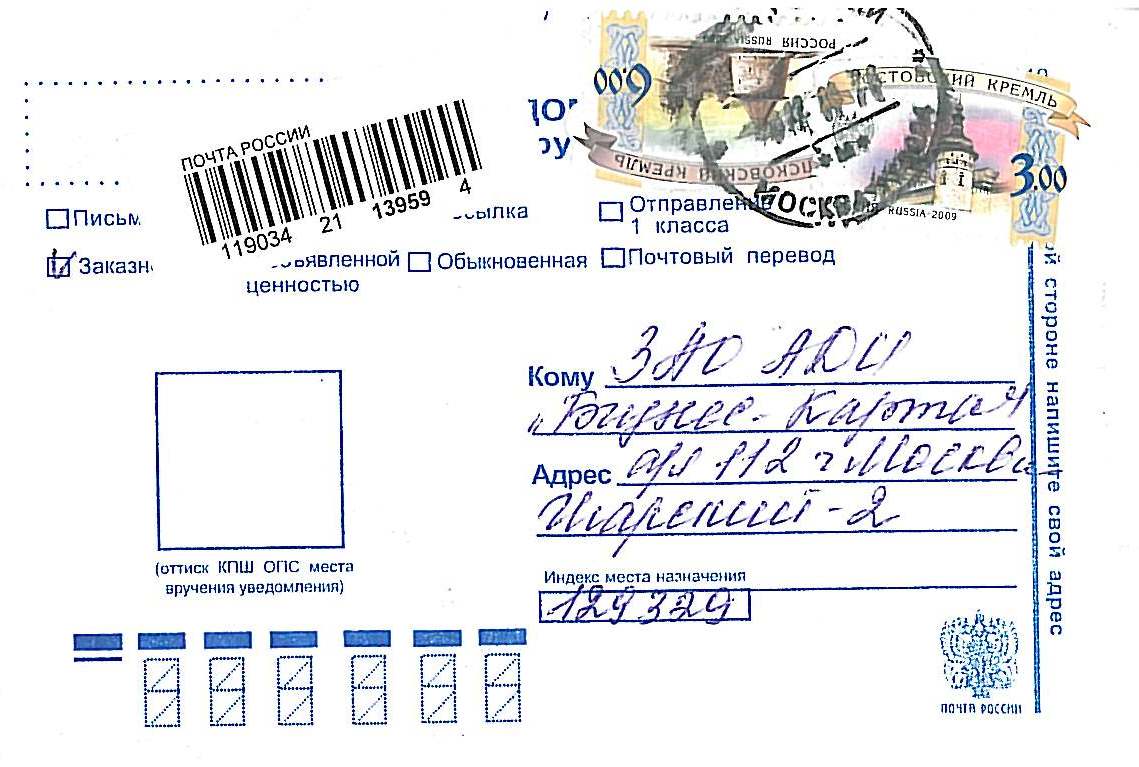 ПОЧТА РОССИИ
119034 21 13959 4
РОССИЯ RUSSIA
6.00
ПСКОВСКИЙ КРЕМЛЬ
РОСТОВСКИЙ КРЕМЛЬ
3.00
RUSSIA-2009
МОСКВА
Письм
сылка
Отправление
1 класса
Заказн
объявленной
ценностью
Обыкновенная
Почтовый перевод
Кому ЗАО АДИ
"Бизнес-Карта"
Адрес а/я 112 г Москва
Индекс места назначения
129329
(оттиск КПШ ОПС места
вручения уведомления)
ой стороне напишите свой адрес
ПОЧТА РОССИИ